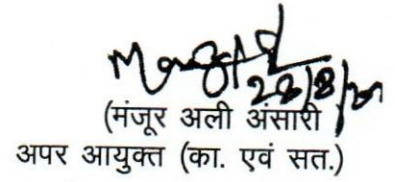 28/8/
(मंजूर अली अंसारी
अपर आयुक्त (का. एवं सत.)